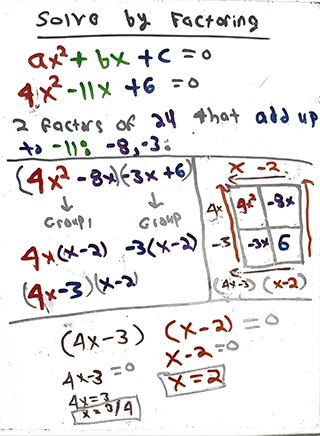 Solve by Factoring
ax² + bx + c = 0
4x² -11x + 6 = 0
2 factors of 24 that add up
to -11: -8, -3:
(4x² - 8x)(-3x + 6)
↓ ↓
Group 1 Group
4x(x-2) -3(x-2)
(4x-3)(x-2)
x -2
4x 4x² -8x
-3 -3x 6
(4x-3) (x-2)
(4x-3) (x-2) = 0
4x-3 = 0 x-2 = 0
4x = 3 x = 2
x = 3/4